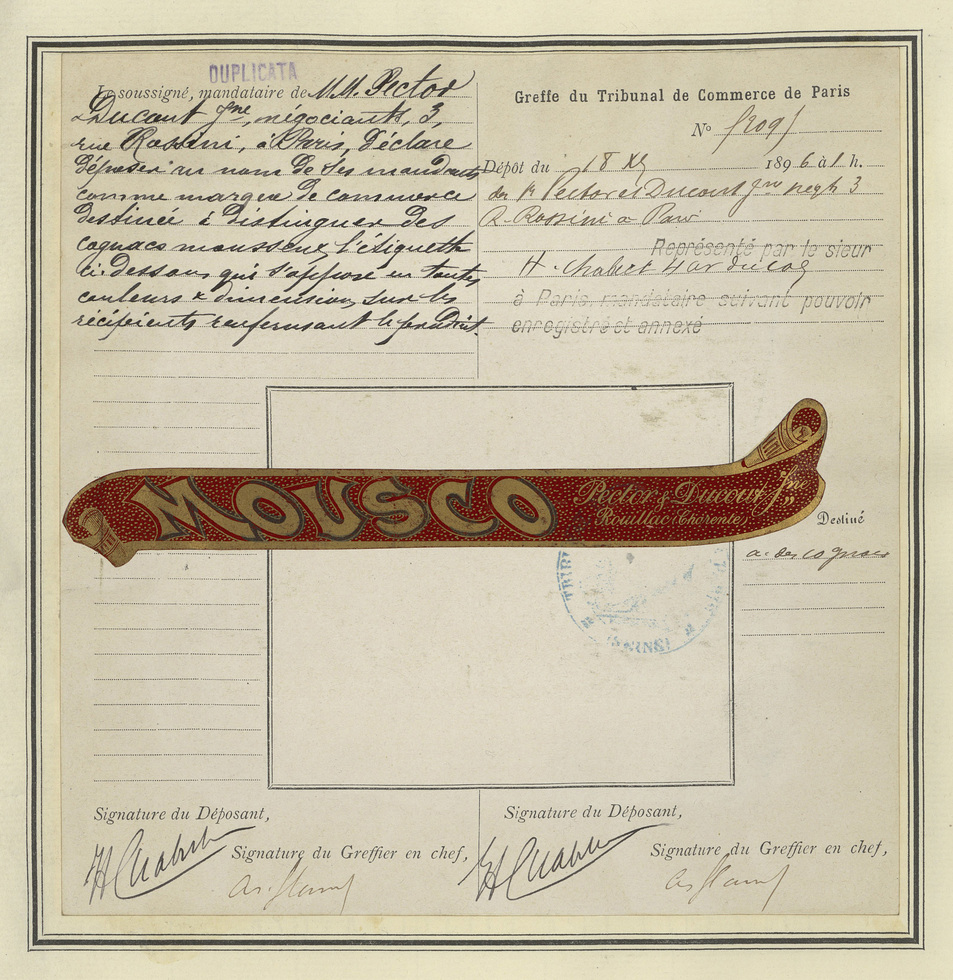 DUPLICATA
Le soussigné, mandataire de MM. Pector
& Ducout Jne, négociants, 3,
rue Rossini, à Paris, déclare
déposer au nom de ses mandants
comme marque de commerce
destinée à distinguer des
cognacs mousseux, l'étiquette
ci-dessous, qui s'appose en toutes
couleurs & dimensions, sur les
récipients renfermant le produit.
Greffe du Tribunal de Commerce de Paris
No
Dépôt du 18 1896 à 1 h.
des Pector et Ducout Jne négts 3
R. Rossini à Paris
Représenté par le sieur
H. Chabert
à Paris, mandataire suivant pouvoir
enregistré et annexé
MOUSCO
Pector & Ducout Jne
Rouillac (Charente)
Destiné
à des cognacs
Signature du Déposant,
Signature du Greffier en chef,
Signature du Déposant,
Signature du Greffier en chef,